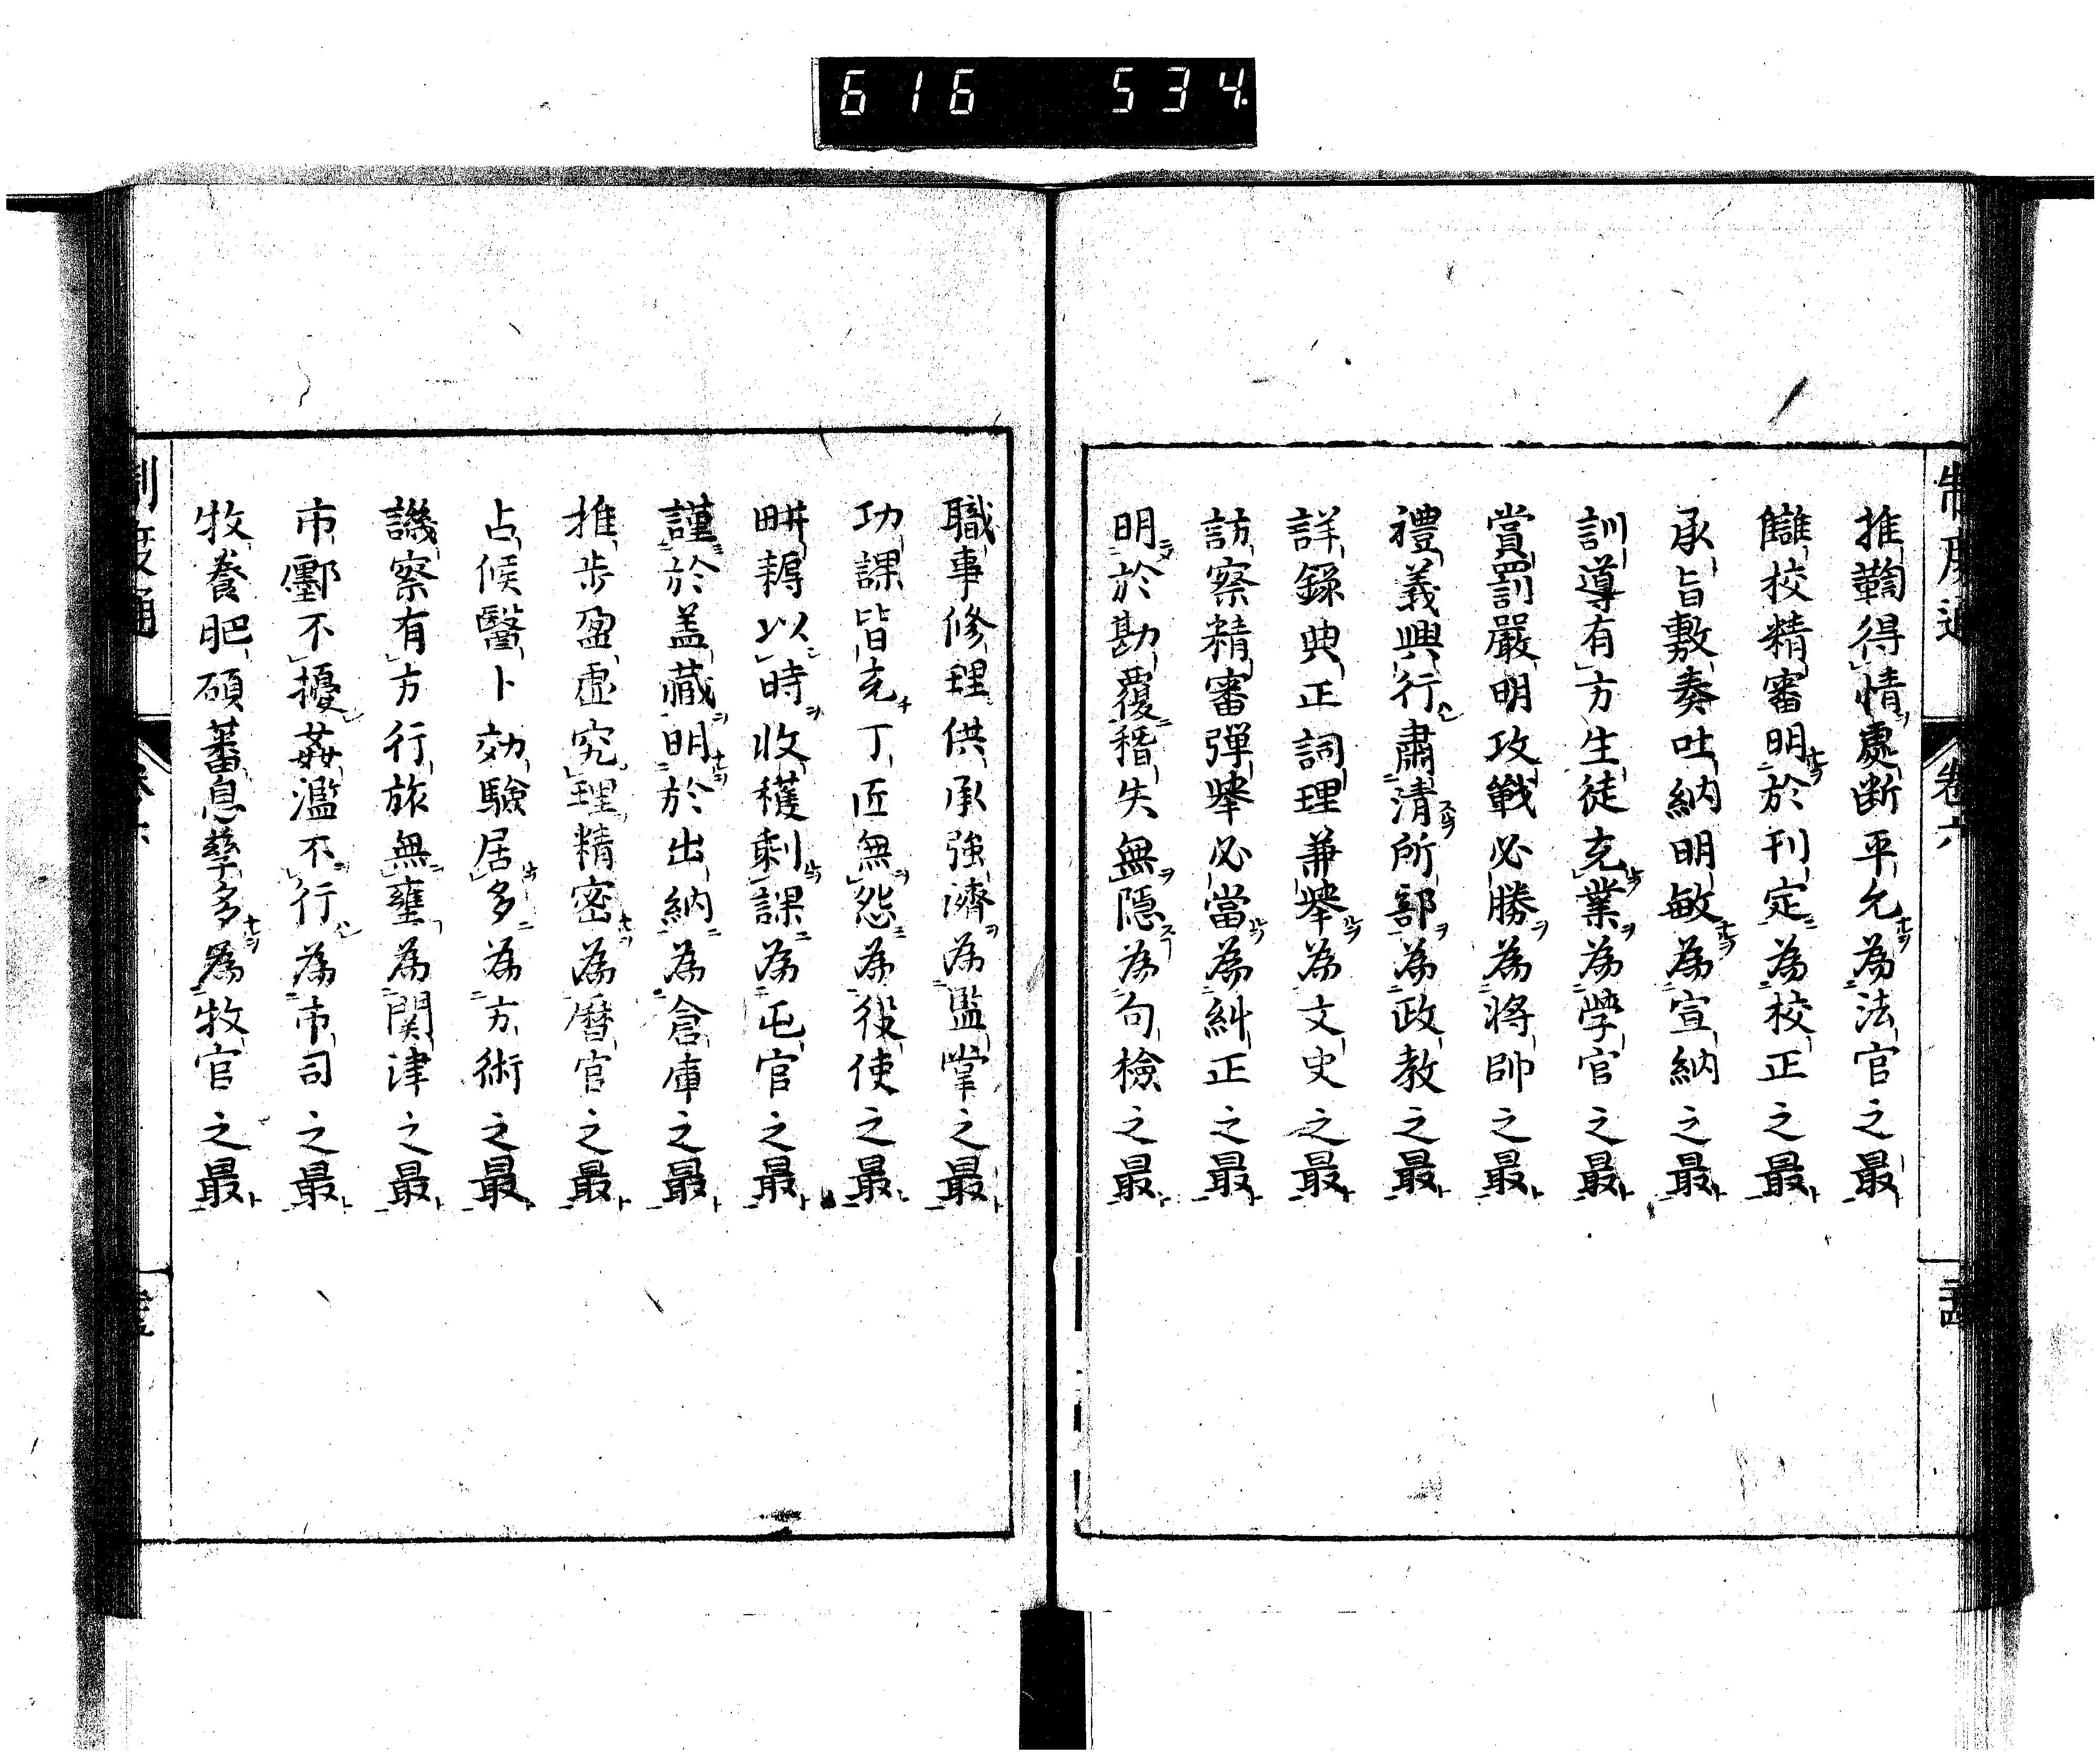 616 534
制度通 卷六
推鞫得情處断平允為法官之最
讎校精審明於刊定為校正之最
承旨敷奏吐納明敏為宣納之最
訓導有方生徒充業為學官之最
賞罰嚴明攻戰必勝為將帥之最
禮義興行肅清所部為政教之最
詳錄典正詞理兼舉為文史之最
訪察精審彈舉必當為糾正之最
明於勘覆稽失無隱為句檢之最
職事修理供承強濟為監掌之最
功課皆充丁匠無怨為役使之最
畊耨以時收穫剩課為屯官之最
謹於盖藏明於出納為倉庫之最
推歩盈虛究理精密為曆官之最
占候醫卜効驗居多為方術之最
譏察有方行旅無壅為関津之最
市鄽不擾姦濫不行為市司之最
牧養肥碩蕃息孳多為牧官之最
制度通